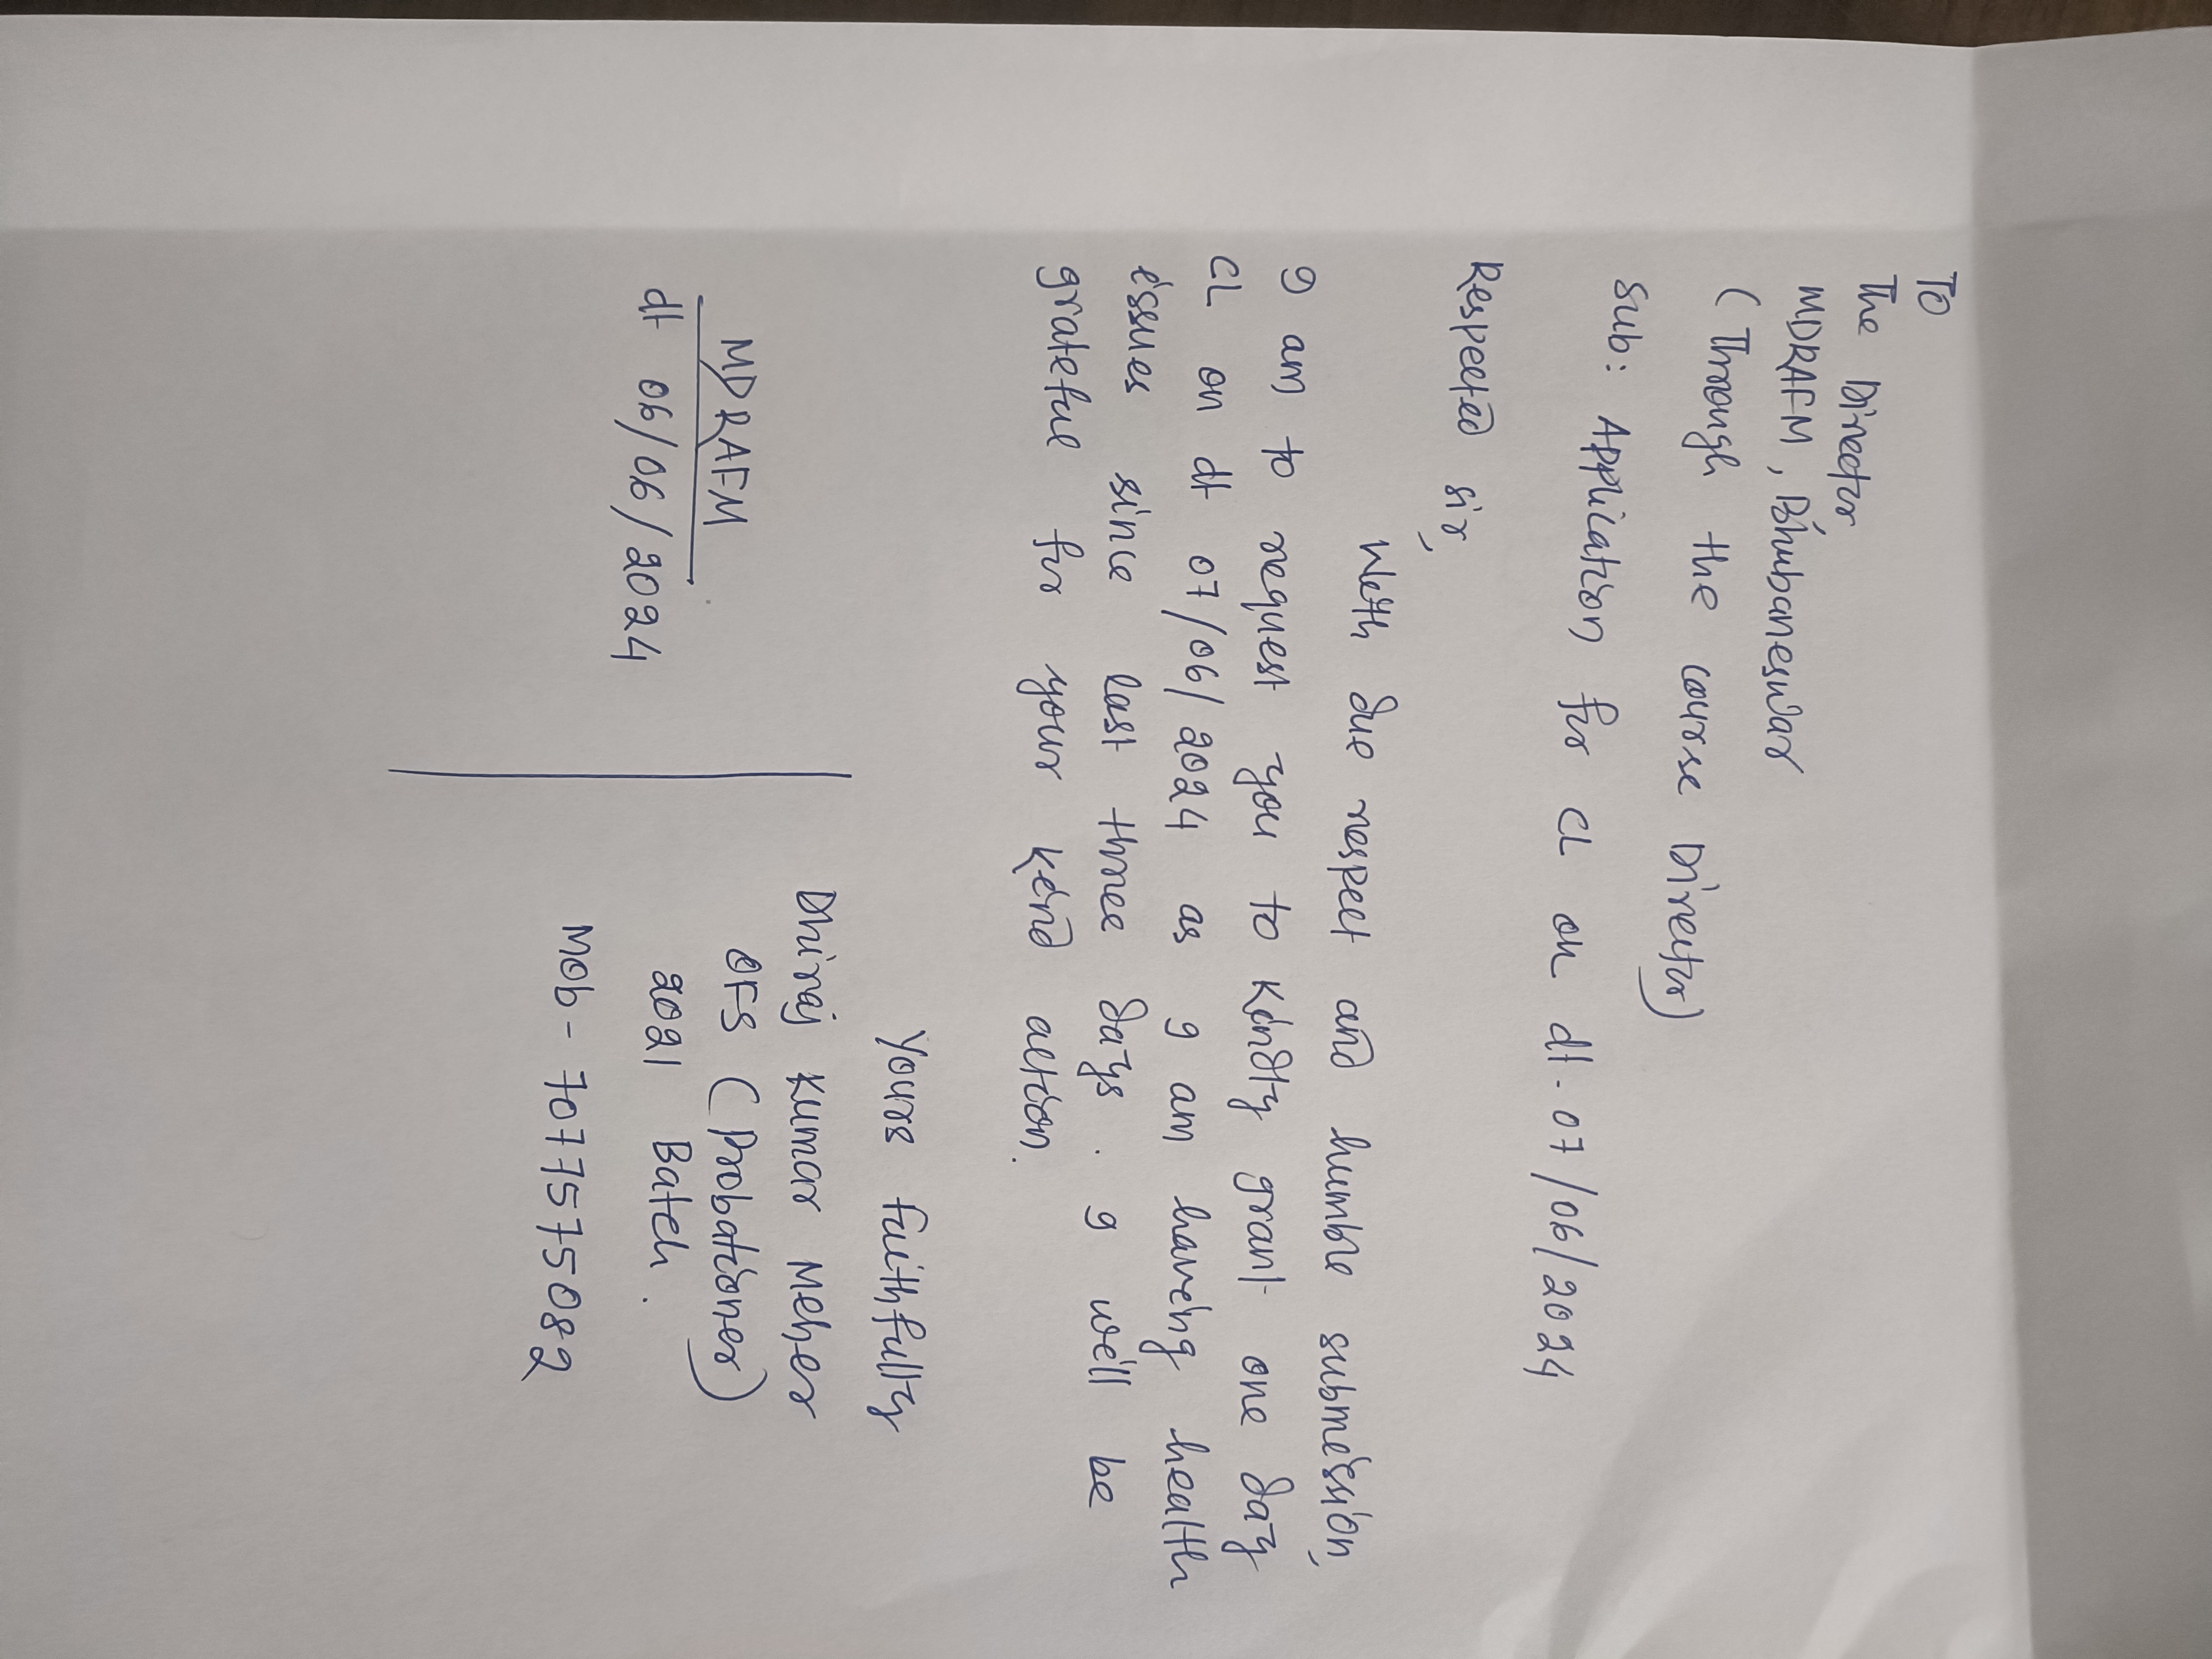 To
The Director
MDRAFM, Bhubaneswar
(Through the course Director)
Sub: Application for CL on dt. 07/06/2024
Respected sir,
With due respect and humble submission,
I am to request you to kindly grant one day
CL on dt 07/06/2024 as I am having health
issues since last three days. I will be
grateful for your kind action.
Yours faithfully
Dhiraj Kumar Meher
OFS (Probationer)
2021 Batch.
Mob - 7077575082
MDRAFM
dt 06/06/2024